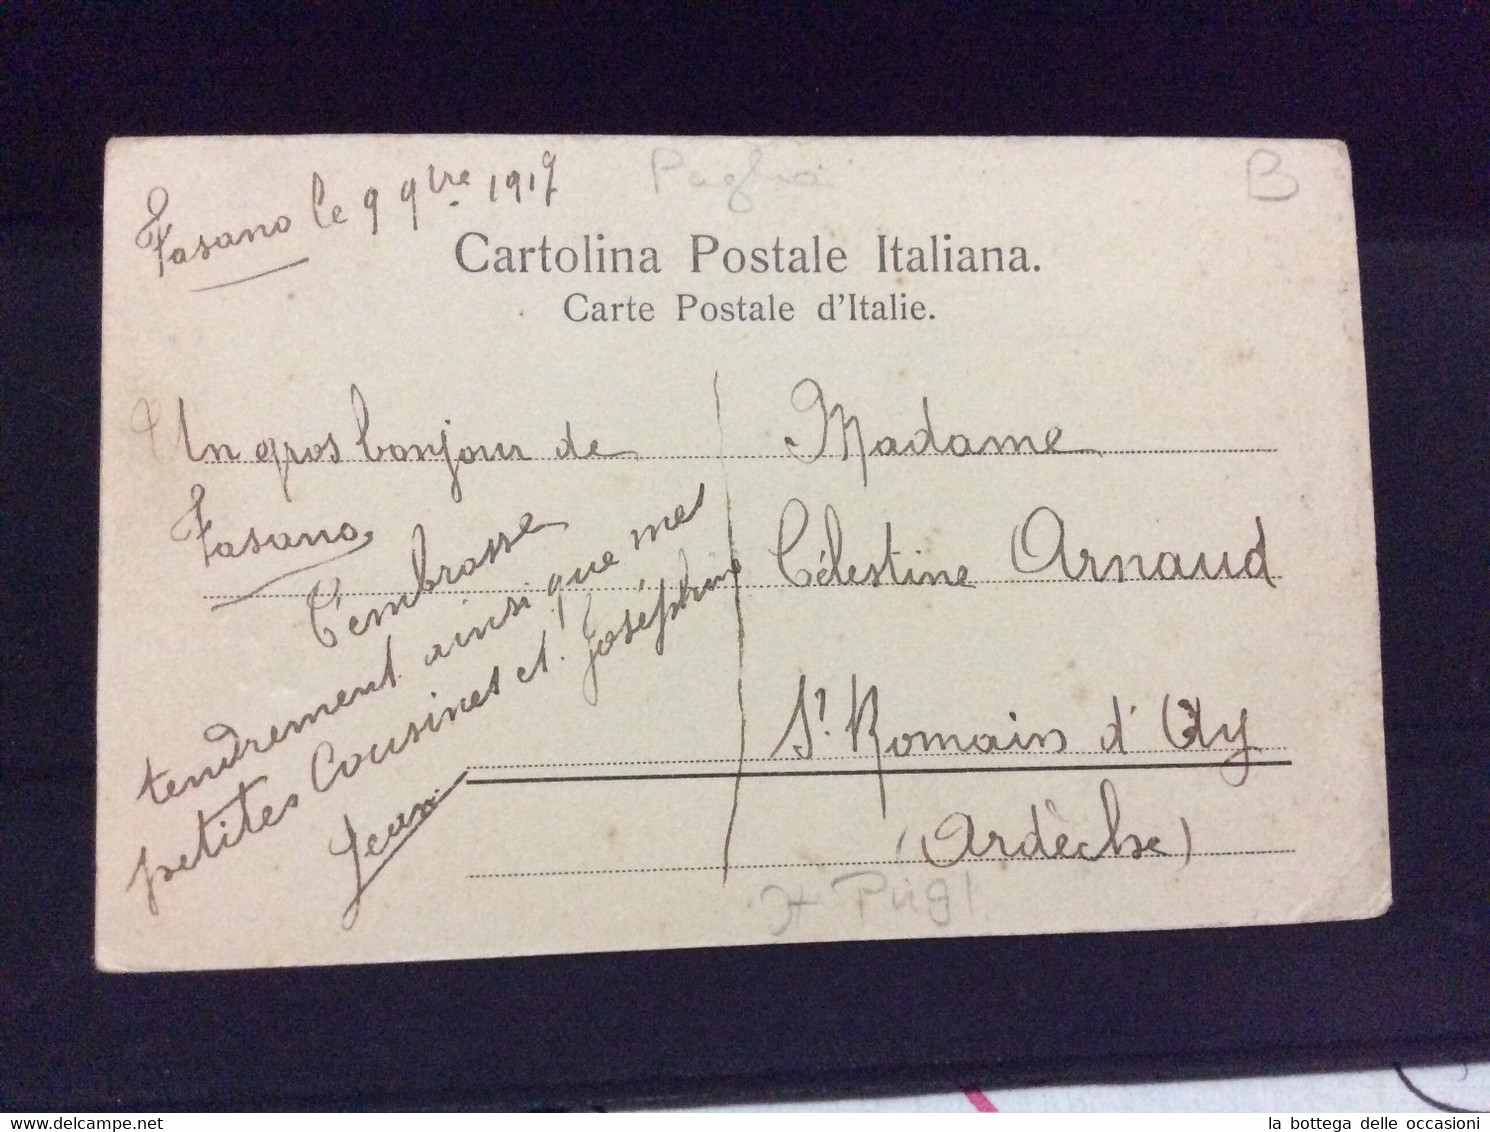 Fasano le 9 9bre 1917
Puglia
B
Cartolina Postale Italiana.
Carte Postale d'Italie.
Un gros bonjour de
Fasano
T'embrasse
tendrement ainsi que mes
petites Cousines et Joséphine
Jean
Madame
Célestine Arnaud
St Romain d'Ay
(Ardèche)
Pugl
la bottega delle occasioni